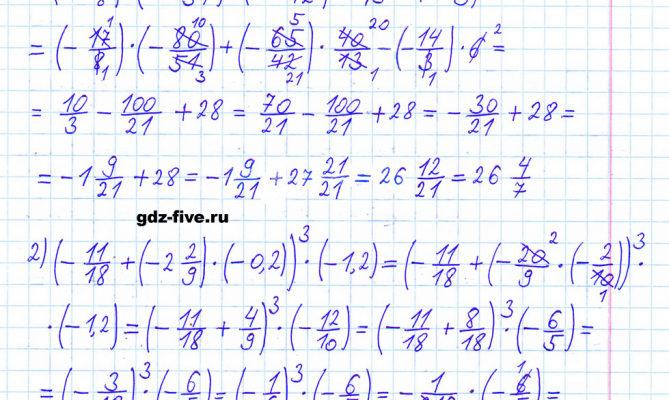 = (-17/8) · (-80/51) + (-65/42) · 40/13 - (-14/3) · 6 =
= 10/3 - 100/21 + 28 = 70/21 - 100/21 + 28 = - 30/21 + 28 =
= -1 9/21 + 28 = -1 9/21 + 27 21/21 = 26 12/21 = 26 4/7
gdz-five.ru
2) (- 11/18 + (-2 2/9) · (-0,2))³ · (-1,2) = (- 11/18 + (- 20/9 · (- 2/10))³ ·
· (-1,2) = (- 11/18 + 4/9)³ · (- 12/10) = (- 11/18 + 8/18)³ · (- 6/5) =
= (- 3/18)³ · (- 6/5) = (- 1/6)³ · (- 6/5) = - 1/216 · (- 6/5) =